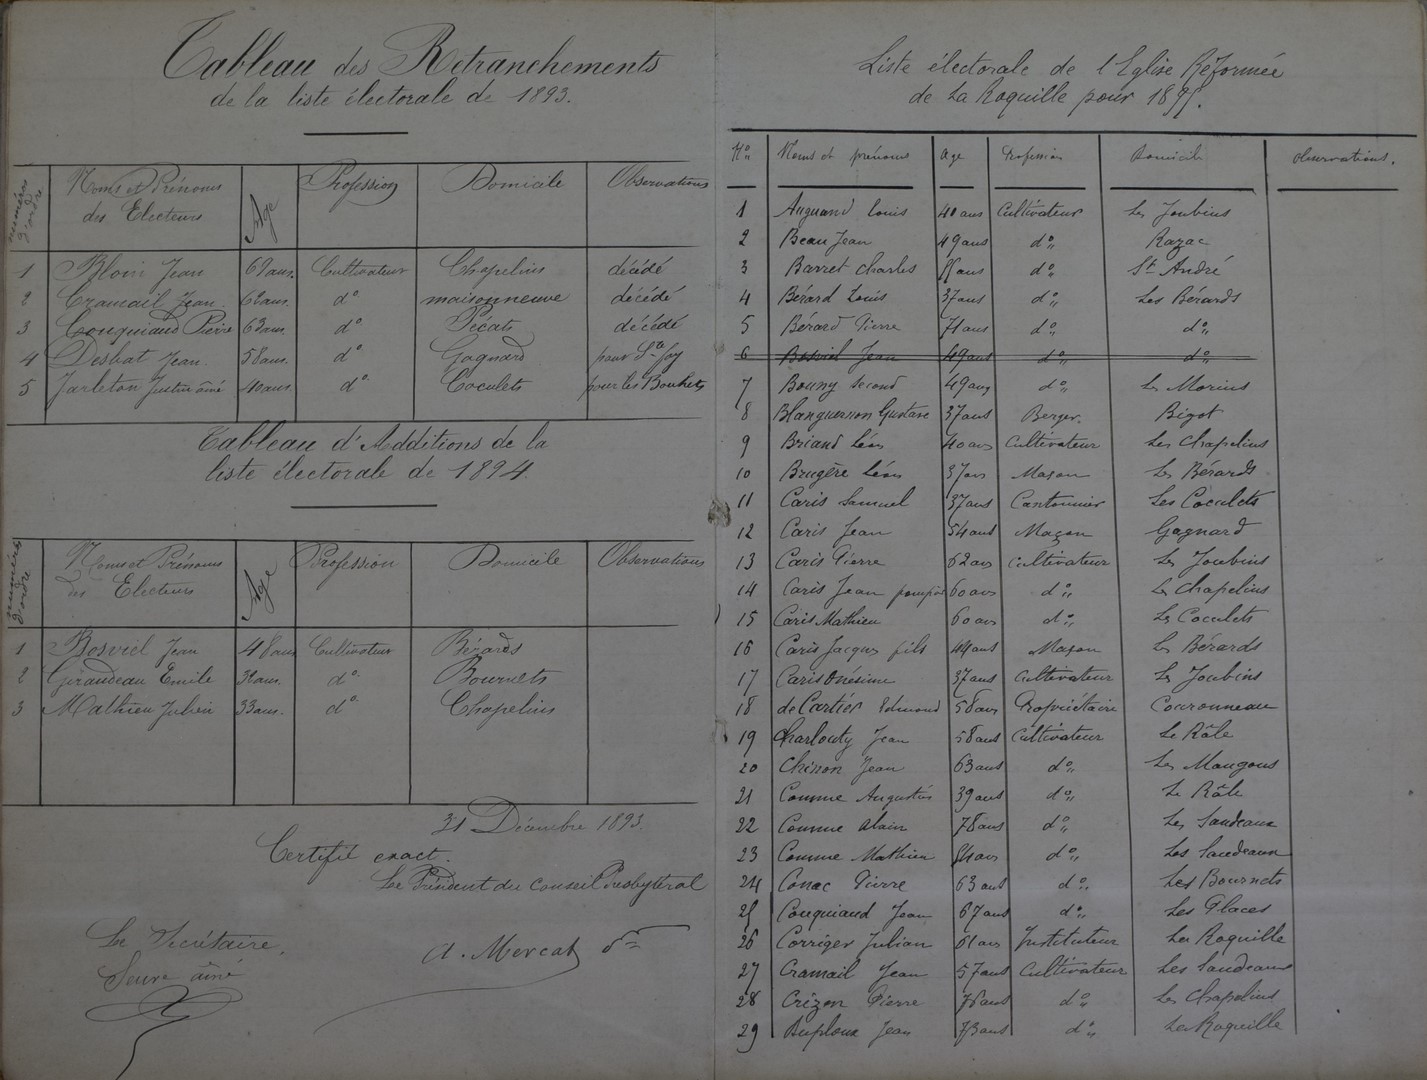 Tableau des Retranchements
de la liste électorale de 1893.
numéros d'ordre Noms et Prénoms des Electeurs Age Profession Domicile Observations
1 Jean 69 ans. Cultivateur Chapelins décédé
2 Cramail Jean. 62 ans. do maisonneuve décédé
3 Couquiaud Pierre 63 ans. do Pécats décédé
4 Desbat Jean. 58 ans. do Gagnard pour Ste foy
5 Jarleton Justin aîné 40 ans. do Coculets pour les Bouhets
Tableau d'Additions de la
liste électorale de 1894.
numéros d'ordre Noms et Prénoms des Electeurs Age Profession Domicile Observations
1 Bosviel Jean 48 ans Cultivateur Bérards
2 Girandeau Emile ans. do Bournets
3 Mathieu Julien 33 ans. do Chapelins
31 Décembre 1893.
Certifié exact.
Le Président du Conseil Presbytéral
Le Secrétaire,
A. Mercat
aîné
Liste électorale de l'Eglise Réformée
de La Roquille pour 1895.
Nos Noms et prénoms Age Profession Domicile Observations.
1 Louis 40 ans Cultivateur Les Joubins
2 Beau Jean 49 ans do Razac
3 Barret Charles 55 ans do St André
4 Bérard Louis 37 ans do Les Bérards
5 Bérard Pierre 71 ans do do
6 Bosviel Jean 49 ans do do
7 Bouny Second 49 ans do Les Morins
8 Blanguernon Gustave 37 ans Berger. Bigot
9 Briand Léon 40 ans Cultivateur Les Chapelins
10 Brugère Léon 37 ans Maçon Les Bérards
11 Caris Samuel 37 ans Cantonnier Les Coculets
12 Caris Jean 54 ans Maçon Gagnard
13 Caris Pierre 62 ans Cultivateur Les Joubins
14 Caris Jean 60 ans do Les Chapelins
15 Caris Mathieu 60 ans do Les Coculets
16 Caris Jacques fils 49 ans Maçon Les Bérards
17 Caris Onésime 37 ans Cultivateur Les Joubins
18 de Cartier Edmond 58 ans Propriétaire Couronneau
19 Charlouty Jean 58 ans Cultivateur Le Râle
20 Chinon Jean 63 ans do Les Maugons
21 Comme Augustin 39 ans do Le Râle
22 Comme Alain 78 ans do Les Saudeaux
23 Comme Mathieu 54 ans do Les Saudeaux
24 Conac Pierre 63 ans do Les Bournets
25 Couquiaud Jean 67 ans do Les Places
26 Corriger Julian 61 ans Instituteur La Roquille
27 Cramail Jean 57 ans Cultivateur Les Saudeaux
28 Crizon Pierre 76 ans do Les Chapelins
29 Duploux Jean 73 ans do La Roquille